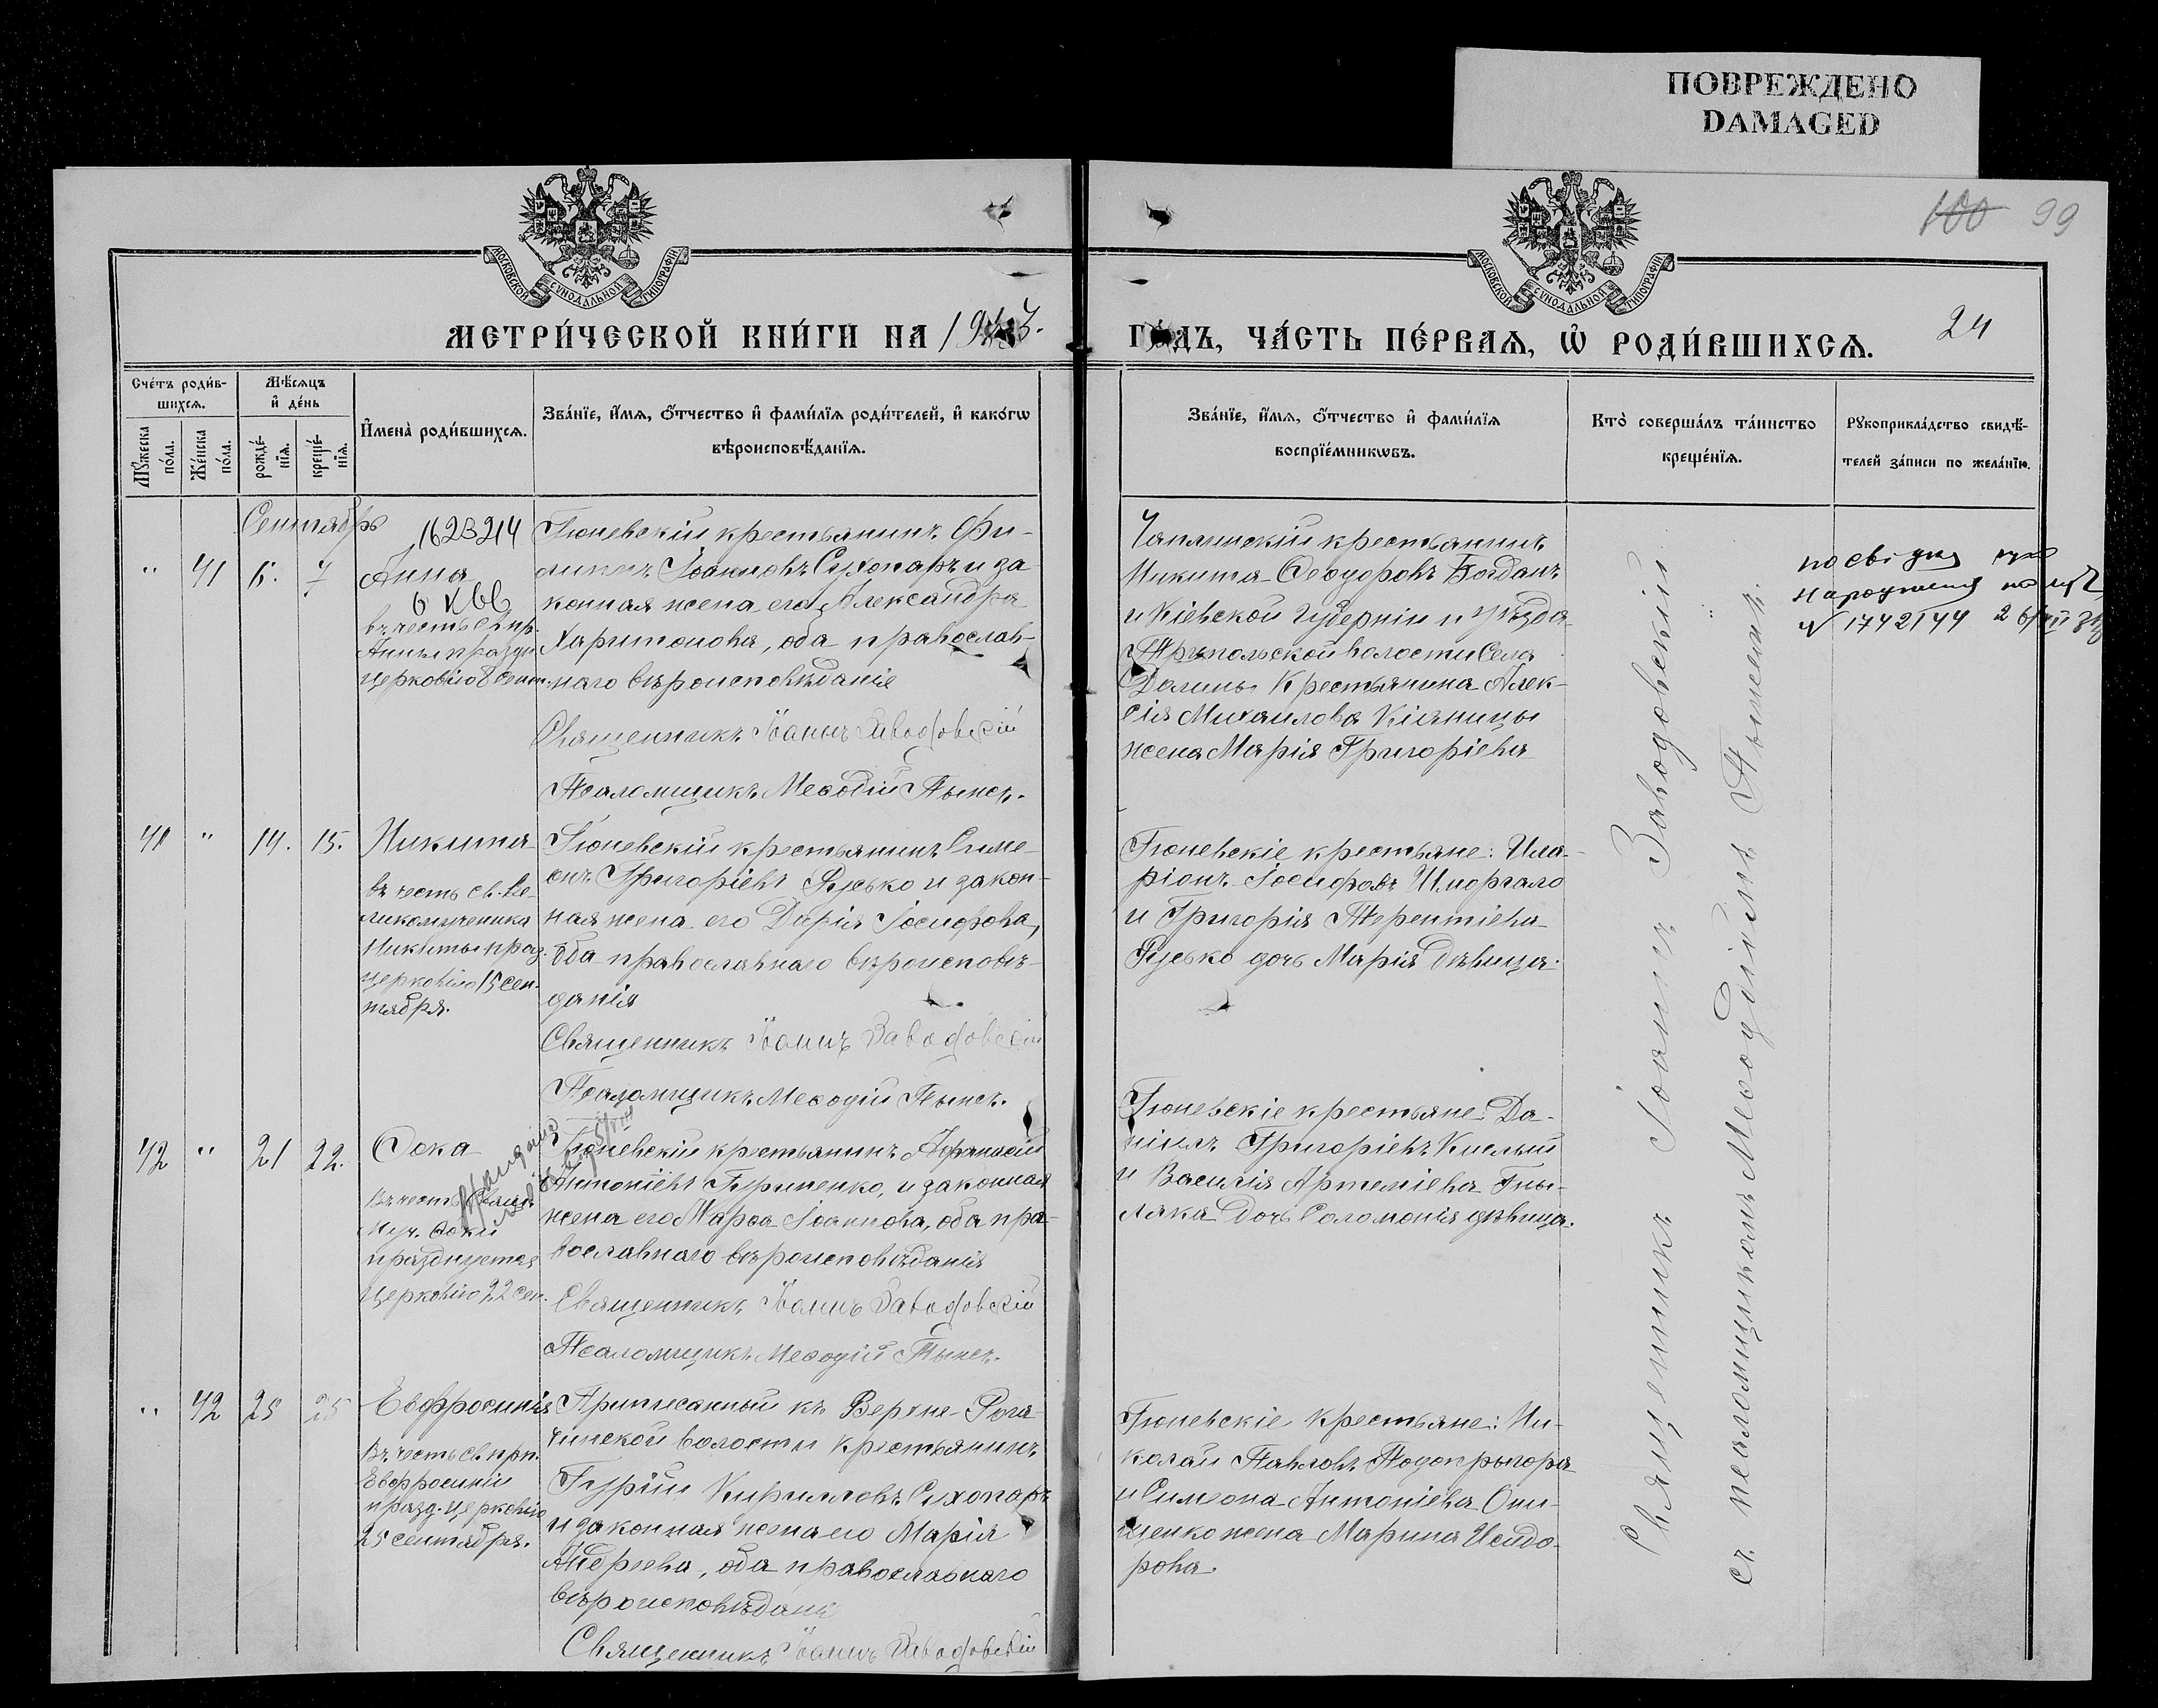 ПОВРЕЖДЕНО
DAMAGED
100 99
МОСКОВСКОЙ СѴНОДАЛЬНОЙ ТИПОГРАФІИ
МОСКОВСКОЙ СѴНОДАЛЬНОЙ ТИПОГРАФІИ
МЕТРИ́ЧЕСКОЙ КНИ́ГИ НА 19
ГО́ДЪ, ЧА́СТЬ ПЕ́РВАЯ, Ѡ РОДИ́ВШИХСЯ.
24
Сче́тъ роди́в-
шихся.
Мѣ́сяцъ
и де́нь
Мꙋ́жеска
по́ла.
Же́нска
по́ла.
рожде́-
нїя.
креще́-
нїя.
Имена̀ роди́вшихся.
Зва́нїе, и́мя, ѻ́тчество и фами́лїя роди́телей, и како́гѡ
вѣроисповѣ́данїя.
Зва́нїе, и́мя, ѻ́тчество и фами́лїя
воспрїе́мникѡвъ.
Кто̀ соверша́лъ та́инство
креще́нїя.
Рꙋкоприкла́дство свидѣ́-
телей за́писи по жела́нїю.
Сентябрь
" 41 6. 7
Анна
въ честь св. пр.
Анны праздн.
церковію 8 сент.
Гюневскій крестьянинъ Фи-
липпъ Іоанновъ Сухопаръ и за-
конная жена его Александра
Харитонова, оба православ-
наго вѣроисповѣданіе
Священникъ Іоаннъ Заводовскій
Псаломщикъ Меѳодій Пынех.
Чаплинскій крестьянинъ
Никита Ѳеодоровъ Богданъ
и Кіевской губерніи и уѣзда
Трипольской волости села
Долины крестьянина Алек-
сія Михаилова Кіяницы
жена Марія Григоріева
посвідка про
народження
N 1742144
41 " 14. 15.
Никита
въ честь св. Ве-
ликомученика
Никиты праз.
церковію 15 сен-
тября.
Гюневскій крестьянинъ Симе-
онъ Григоріевъ Гусько и закон-
ная жена его Дарія Іосифова,
оба православнаго вѣроисповѣ-
данія
Священникъ Іоаннъ Заводовскій
Псаломщикъ Меѳодій Пынех.
Гюневскіе крестьяне: Ила-
ріонъ Іосифовъ Шморгало
и Григорія Терентіева
Гусько дочь Марія дѣвица.
42 " 21 22.
Фока
Въ честь
муч. Фоки
празднуется
церковію 22 сен.
Гюневскій крестьянинъ Афанасій
Антоніевъ Гуриненко, и законная
жена его Марѳа Іоаннова, оба пра-
вославнаго вѣроисповѣданія
Священникъ Іоаннъ Заводовскій
Псаломщикъ Меѳодій Пынех.
Гюневскіе крестьяне: Да-
ніилъ Григоріевъ Кислый
и Василія Артеміева Гны-
ляка дочь Соломонія дѣвица.
" 42 25 25
Евфросинія
Въ честь св. прп.
Евфросиніи
празд. церковію
25 сентября.
Приписанный къ Верхне-Рога-
чинской волости крестьянинъ
Гурій Кирилловъ Сухопаръ
и законная жена его Марія
Андреева, оба православнаго
вѣроисповѣданія
Священникъ Іоаннъ Заводовскій
Гюневскіе крестьяне: Ни-
колай Павловъ Подопрыгора
и Симеона Антоніева Они-
щенко жена Марина Исидо-
рова.
Священникъ Іоаннъ Заводовскій
съ псаломщикомъ Меѳодіемъ